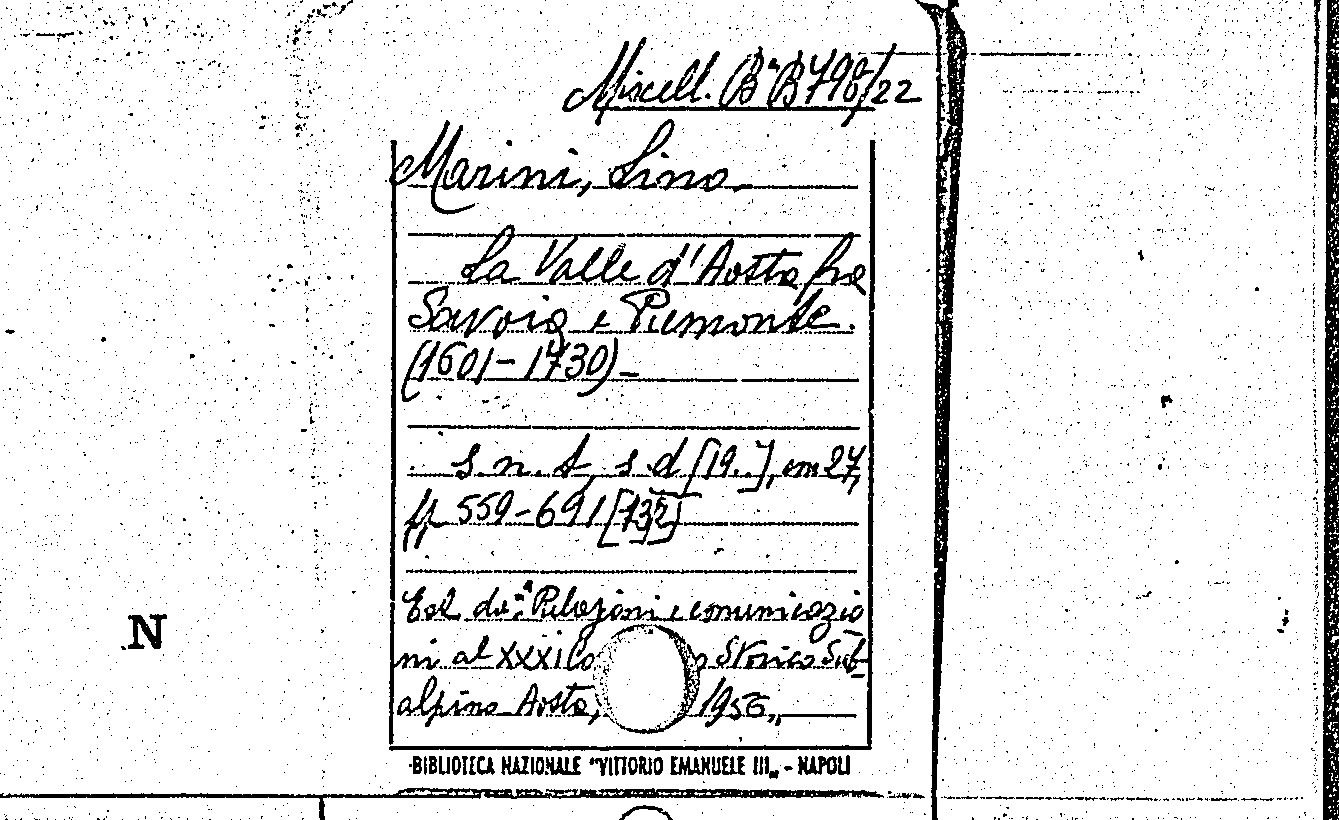 Miscell. Bª B 798/22
Marini, Lino.
La Valle d'Aosta fra
Savoia e Piemonte.
(1601-1730)-
s. n. t, s. d [19..], cm 27,
pp 559-691 [132]
Est. da: "Relazioni e comunicazio
ni al XXXI Co o Storico Sub-
alpino Aosta, 1956"
N
BIBLIOTECA NAZIONALE "VITTORIO EMANUELE III" - NAPOLI